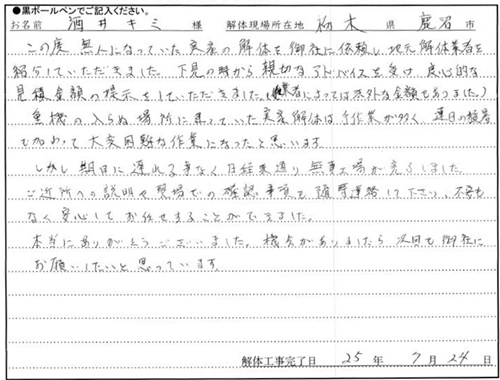 ●黒ボールペンでご記入ください。
お名前 酒井キミ 様 解体現場所在地 栃木 県 鹿沼 市
この度、無人になっていた実家の解体を御社に依頼し、地元解体業者を
紹介していただきました。下見の時から親切なアドバイスを受け、良心的な
見積金額の提示をしていただきました。(業者によっては法外な金額もありました。)
重機の入らぬ場所に建っていた実家解体は手作業が多く、連日の猛暑
も加わって大変困難な作業になったと思います。
しかし期日に遅れる事なく日程表通り無事工場が完了しました。
ご近所への説明や現場での確認事項も随時連絡して下さり、不安も
なく安心してお任せすることができました。
本当にありがとうございました。機会がありましたら次回も御社に
お願いしたいと思っています。
解体工事完了日 25 年 7 月 24 日